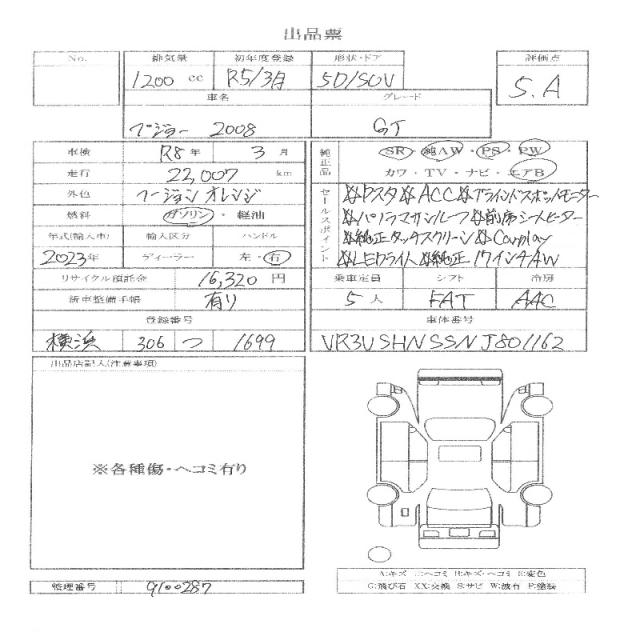 出品票
No. 排気量 初年度登録 形状・ドア 評価点
1200 cc R5/3月 5D/SUV 5.A
車名 グレード
プジョー 2008 GT
車検 R8年 3月
走行 22,007 km
外色 フージョンオレンジ
燃料 ガソリン ・ 軽油
年式(輸入車) 輸入区分 ハンドル
2023年 ディーラー 左・右
リサイクル預託金 16,320 円
新車整備手帳 有り
登録番号
横浜 306 つ 1699
純正品 SR ・ 純AW ・ PS ・ PW
カワ ・ TV ・ ナビ ・ エアB
セールスポイント
Pスタ ACC ブラインドスポットモニター
パノラマサンルーフ 前席シートヒーター
純正タッチスクリーン Carplay
LEDライト 純正17インチAW
乗車定員 シフト 冷房
5人 FAT AAC
車体番号
VR3USHNSSNJ801162
出品店記入(注意事項)
※各種傷・ヘコミ有り
A:キズ ヘコミ キズ・ヘコミ 変色
G:飛び石 XX:交換 S:サビ W:波有 P:塗装
管理番号 9100287